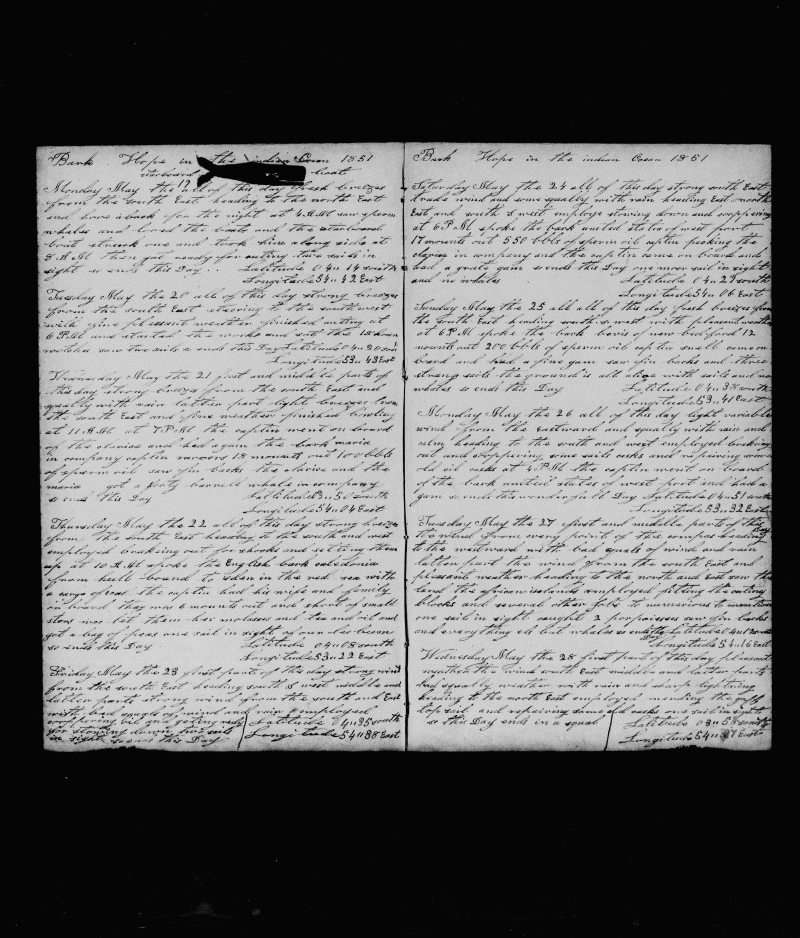 Bark Hope in the indian Ocean 1851
starboard boat
Monday May the 19 all of this day fresh breezes
from the south East heading to the north East
and hove aback for the night at 4 A.M saw sperm
whales and lowed the boats and the starboard
boat struck one and took him along side at
8 A.M then got ready for cuting two sails in
sight so ends this Day.. Latitude 04 11 14 south
Longitude 54 11 42 East
Tuesday May the 20 all of this day strong breezes
from the south East steering to the south west
with fine plesent weather finished cuting at
6 P.M and started the works and set the
watches saw two sails s ends this Day Latitude 04 11 20 south
Longitude 53 11 43 East
Wednesday May the 21 first and middle parts of
this day strong breezes from the south East and
squally with rain latter part light breezes from
the south East and fine weather finished boiling
at 11 A.M. at 7 P.M the captin went on board
of the clarice and had a gam the bark maria
in company captin 18 mounts out 100 bbls
of sperm oil saw fin backs the clarice and the
maria got a forty barrell whale in company
so ends this Day Latitude 03 11 50 south
Longitude 54 11 04 East
Thursday May the 22 all of this day strong breezes
from the south East heading to the south and west
employed breaking out for shooks and setting them
up at 10 A.M spoke the English bark caledonia
from hull bound to aden in the red sea with
a cargo of coal the captin had his wife and family
on board they was 6 mounts out and short of small
stors we let them have molasses and tea and oil and
got a bag of peas one sail in sight
so ends this Day Latitude 04 11 08 south
Longitude 53 11 22 East
Friday May the 23 first part of this day strong wind
from the south East heading south & west middle and
latter parts strong wind from the south and East
with bad squals of wind and rain employed
coopering oil and geting ready
for stowing down two sails
in sight so ends this Day
Latitude 04 11 35 south
Longitude 54 11 38 East
Bark Hope in the indian Ocean 1851
Saturday May the 24 all of this day strong south East
trade wind and some squally with rain heading East north
East and south & west employe stowing down and coopering
at 6 P.M spoke the bark united states of west port
17 mounts out 550 bbls of sperm oil captin the
clarice in company and the captin came on board and
had a grate gam so ends this Day one moor sail in sight
and no whales Latitude 04 11 27 south
Longitude 54 11 06 East
Sunday May the 25 all all of this day fresh breezes from
the south East heading south & west with pleasent weather
at 6 P.M spoke the bark lewis of new bedford 12
mounts out 200 bbls of sperm oil captin came on
board and had a fine gam saw fin backs and three
strang sails the ground is all alive with sails and no
whales so ends this Day Latitude 04 11 38 south
Longitude 53 11 41 East
Monday May the 26 all of this day light variable
wind from the Eastward and squally with rain and
calm heading to the south and west employed breaking
out and coopering some sails casks and repairing some
old oil casks at 4 P.M the captin went on board
of the bark united states of west port and had a
gam so ends this wonderfull Day Latitude 04 11 51 south
Longitude 53 11 32 East
Tuesday May the 27 first and middle parts of this Day
the wind from every point of the compas heading
to the westward with bad squals of wind and rain
latter part the wind from the south East and
plesent weather heading to the north and East saw the
land the african islands employed fitting the cuting
blocks and several other jobs to numerious to mention
one sail in sight caught 2 porpoises saw fin backs
and every thing els but whales so ends the Day Latitude 04 11 south
Longitude 54 11 16 East
Wednesday May the 28 first part of this day plesent
weather the wind south East middle and latter parts
bad squally weather with rain and sharp lightning
heading to the north East employed mending the jibb
top sail and repairing some old casks one sail in sight
so this Day ends in a squal Latitude 03 11 58 south
Longitude 54 11 37 East